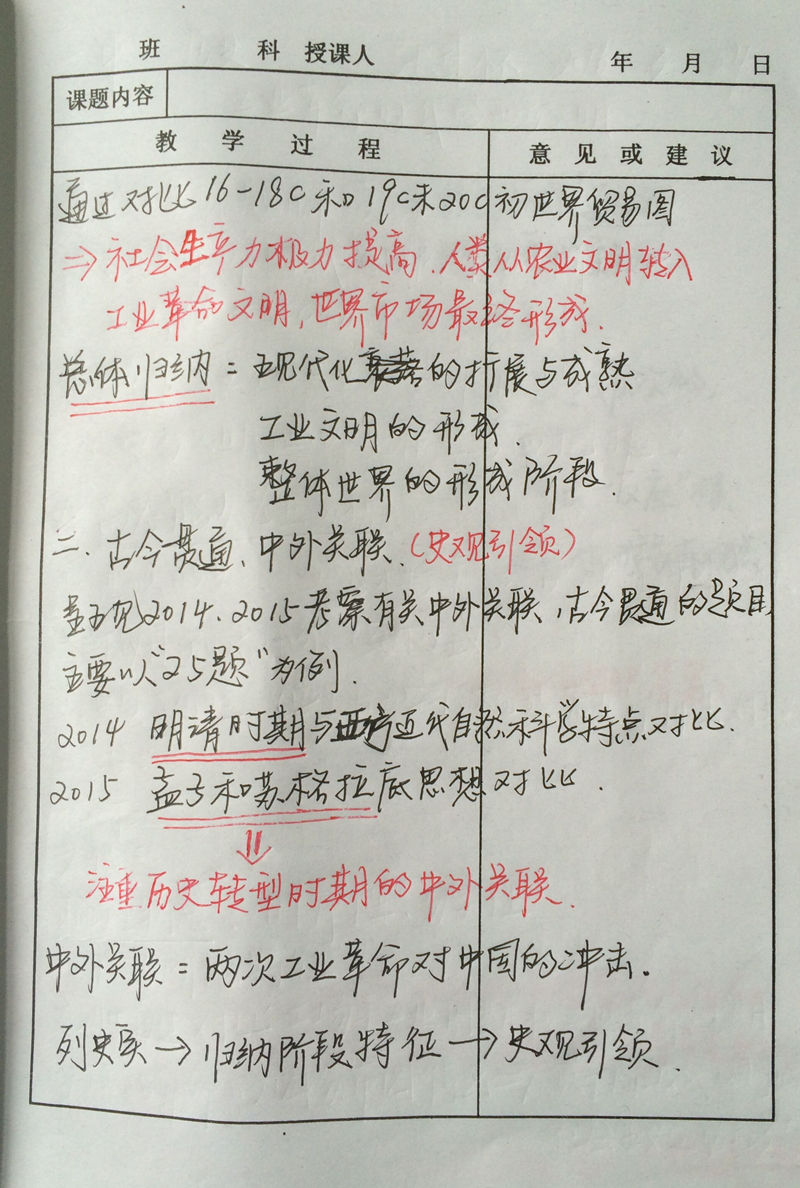 班 科 授课人 年 月 日
课题内容
教 学 过 程 意 见 或 建 议
通过对比16-18C和19C末20C初世界贸易图
⇒社会生产力极力提高、人类从农业文明转入
工业革命文明,世界市场最终形成.
总体归纳:现代化的扩展与成熟
工业文明的形成.
整体世界的形成阶段.
二、古今贯通、中外关联.(史观引领)
2014、2015考察有关中外关联,古今贯通的题目
主要以"25题"为例.
2014 明清时期与西方近代自然科学特点对比.
2015 孟子和苏格拉底思想对比.
⇓
注重历史转型时期的中外关联.
中外关联:两次工业革命对中国的冲击.
列史实→归纳阶段特征→史观引领.